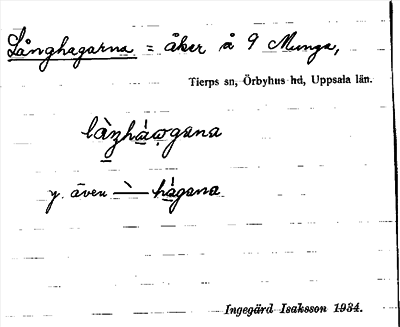 Långhagarna = åker å 9 Munga,
Tierps sn, Örbyhus hd, Uppsala län.
y. även — hágana
Ingegärd Isaksson 1934.